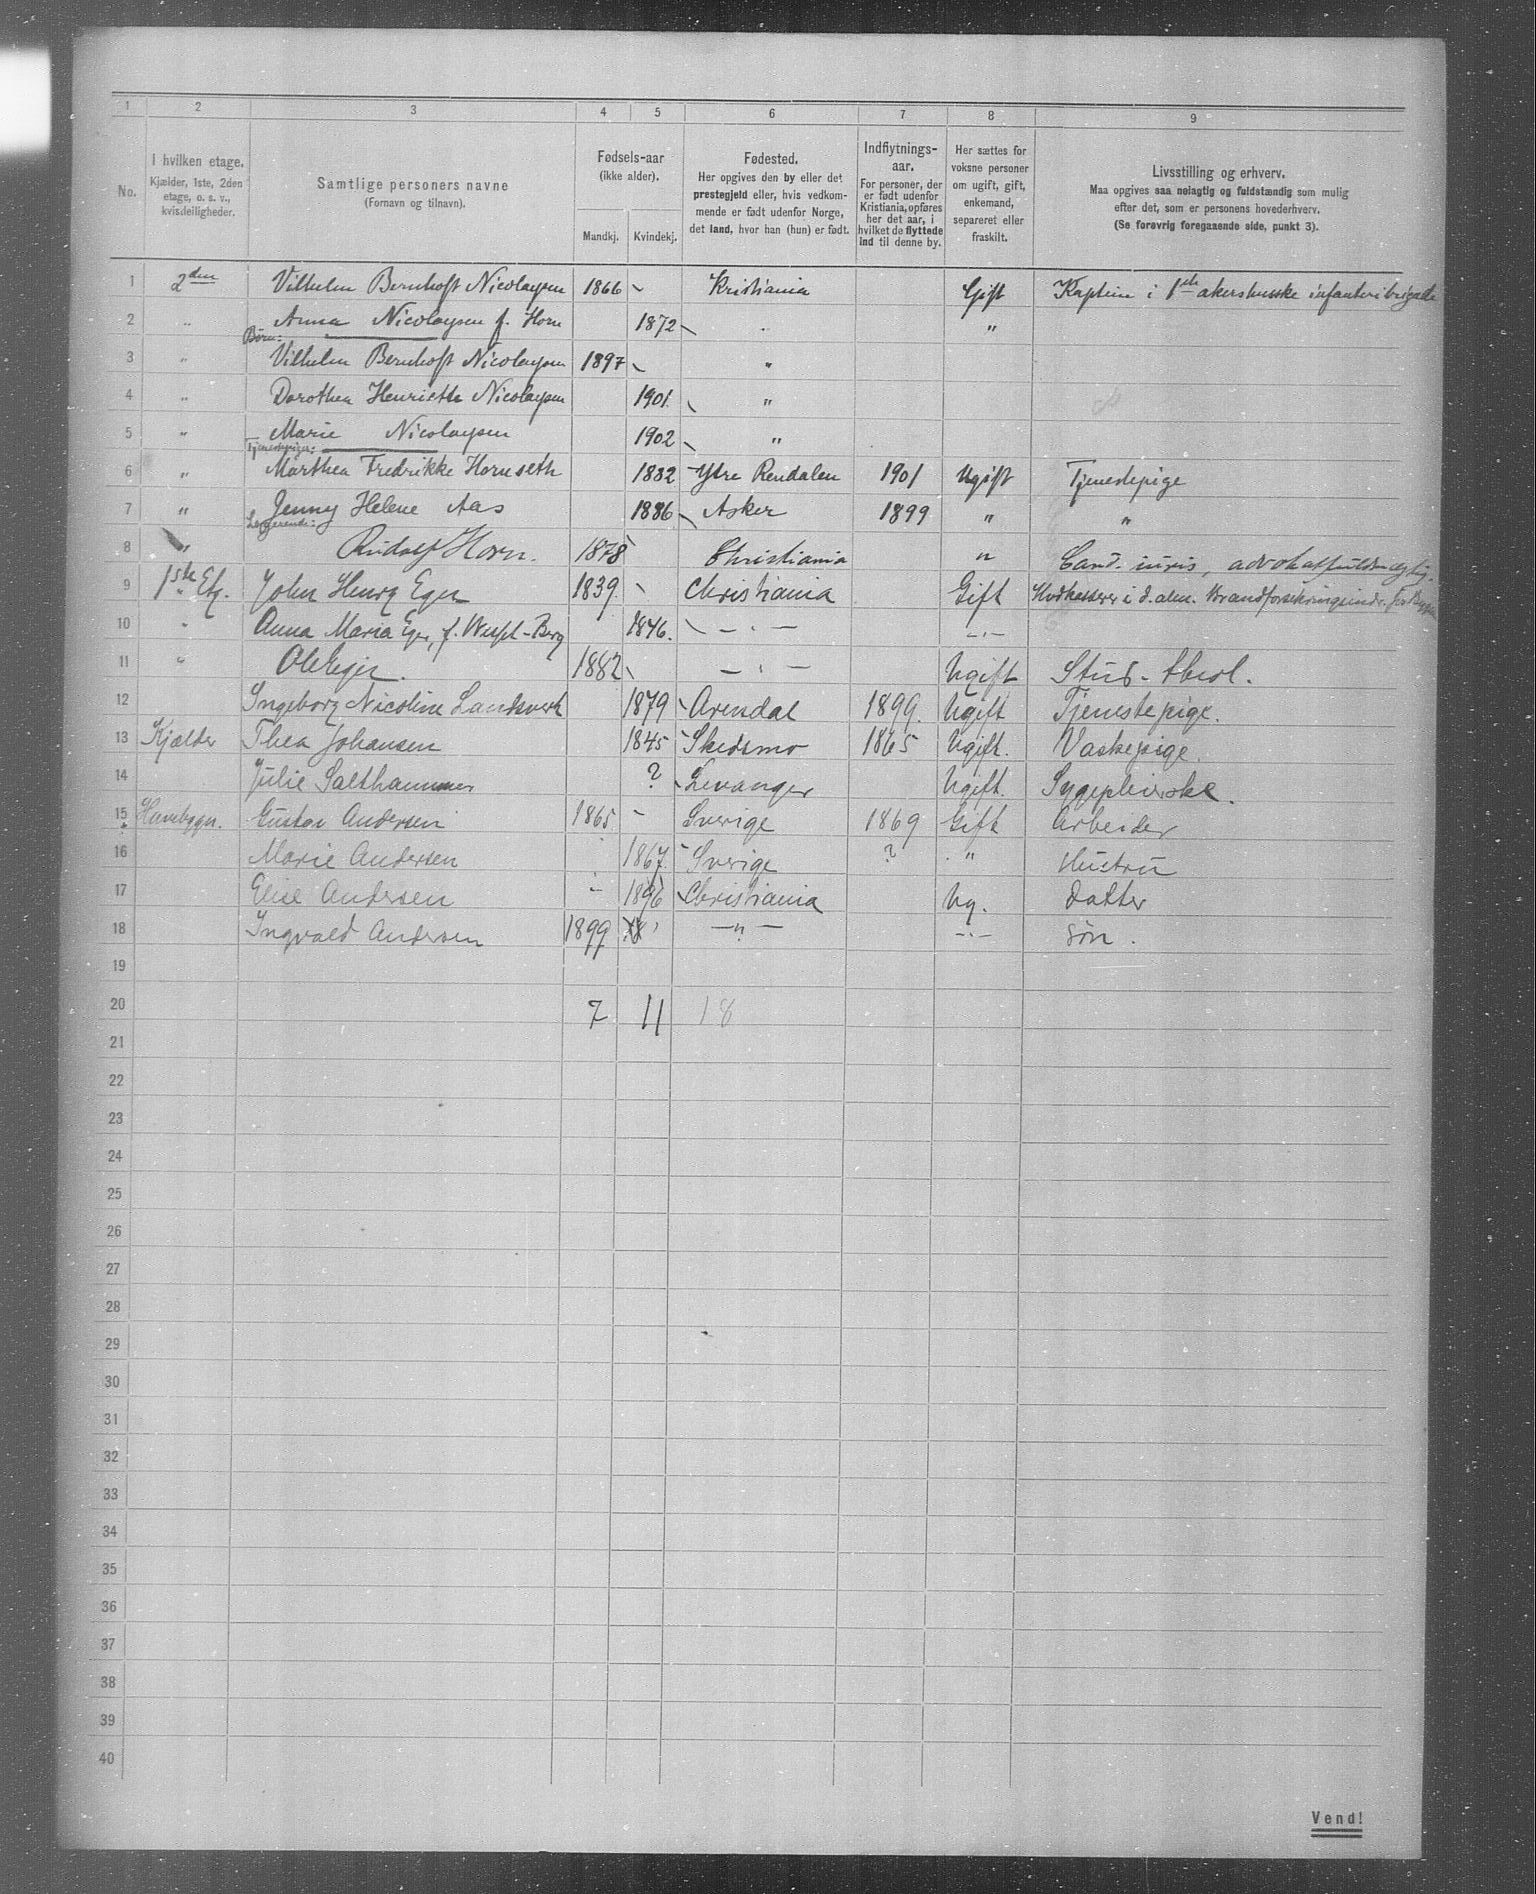 1 2 3 4 5 6 7 8 9
No.
I hvilken etage.
Kjælder, 1ste, 2den
etage, o. s. v.,
kvisdeiligheder.
Samtlige personers navne
(Fornavn og tilnavn).
Fødsels-aar
(ikke alder).
Mandkj. Kvindekj.
Fødested.
Her opgives den by eller det
prestegjeld eller, hvis vedkom-
mende er født udenfor Norge,
det land, hvor han (hun) er født.
Indflytnings-
aar.
For personer, der
er født udenfor
Kristiania, opføres
her det aar, i
hvilket de flyttede
ind til denne by.
Her sættes for
voksne personer
om ugift, gift,
enkemand,
separeret eller
fraskilt.
Livsstilling og erhverv.
Maa opgives saa nøiagtig og fuldstændig som mulig
efter det, som er personens hovederhverv.
(Se forøvrig foregaaende side, punkt 3).
1 2den Vilhelm Bernhoft Nicolaysen 1866 Kristiania Gift Kaptein i 1ste akershuske infanteribrigade
2 " Anna Nicolaysen f. Horn 1872 " "
Børn:
3 " Vilhelm Bernhoft Nicolaysen 1897 "
4 " Dorothea Henriette Nicolaysen 1901 "
5 " Marie Nicolaysen 1902 "
Tjenestepiger:
6 " Marthea Fredrikke Hornseth 1882 Ytre Rendalen 1901 Ugift Tjenestepige
7 " Jenny Helene Aas 1886 Asker 1899 " "
Logerende:
8 " Rudolf Horn. 1878 Christiania " Cand. iuris, advokatfuldmægtig.
9 1ste Etg. John Henry Eger 1839 Christiania Gift Hvdkasserer i d. alm. Brandforsikringsindr. for Bygn
10 " Anna Maria Eger, f. Westpl-Berg 1846. — " — — " —
11 " Ole Eger. 1882 — " — Ugift Stud. theol.
12 Ingeborg Nicoline Landsverk 1879 Arendal 1899. Ugift Tjenestepige.
13 Kjælder Thea Johansen 1845 Skedsmo 1865 Ugift. Vaskepige.
14 Julie Salthammer ? Levanger Ugift. Sygepleierske.
15 Havebygn. Gustav Andersen 1865 Sverige 1869 Gift Arbeider
16 Marie Andersen 1867. Sverige ? " Hustru
17 Elise Andersen 1896 Christiania Ug. Datter
18 Ingvald Andersen 1899 — " — — " — Søn.
19
20 7 11 18
21
22
23
24
25
26
27
28
29
30
31
32
33
34
35
36
37
38
39
40
Vend!